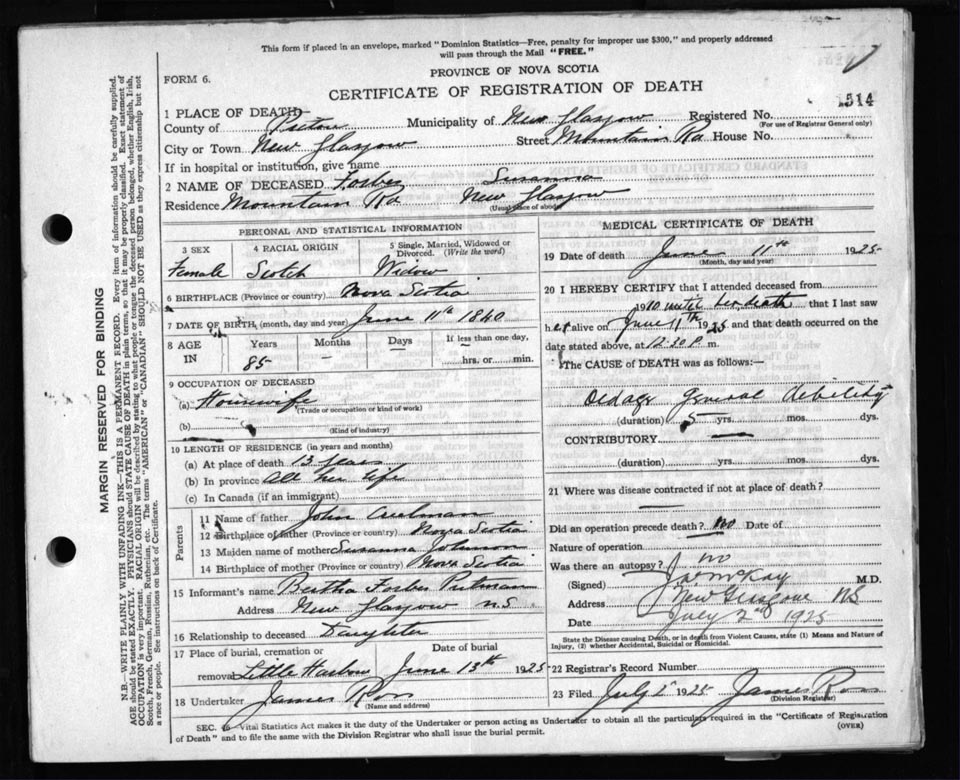 This form if placed in an envelope, marked "Dominion Statistics—Free, penalty for improper use $300," and properly addressed
will pass through the Mail "FREE."
PROVINCE OF NOVA SCOTIA
FORM 6.
CERTIFICATE OF REGISTRATION OF DEATH
1514
1 PLACE OF DEATH
County of Pictou Municipality of New Glasgow Registered No.
(For use of Registrar General only)
City or Town New Glasgow Street Mountain Rd House No.
If in hospital or institution, give name
2 NAME OF DECEASED Forbes Susanna
Residence Mountain Rd New Glasgow
(Usual place of abode)
PERSONAL AND STATISTICAL INFORMATION
3 SEX 4 RACIAL ORIGIN 5 Single, Married, Widowed or
Divorced. (Write the word)
Female Scotch Widow
6 BIRTHPLACE (Province or country) Nova Scotia
7 DATE OF BIRTH (month, day and year) June 11th 1840
8 AGE IN Years Months Days If less than one day,
85 – – hrs. or min.
9 OCCUPATION OF DECEASED
(a) Housewife
(Trade or occupation or kind of work)
(b)
(Kind of industry)
10 LENGTH OF RESIDENCE (in years and months)
(a) At place of death 13 years
(b) In province All her life
(c) In Canada (if an immigrant)
Parents
11 Name of father John
12 Birthplace of father (Province or country) Nova Scotia
13 Maiden name of mother Susanna Johnson
14 Birthplace of mother (Province or country) Nova Scotia
15 Informant's name Bertha Forbes Putman
Address New Glasgow N.S
16 Relationship to deceased Daughter
17 Place of burial, cremation or Date of burial
removal Little Harbour June 13th 1925
18 Undertaker James Ross
(Name and address)
MEDICAL CERTIFICATE OF DEATH
19 Date of death June 11th 1925
(Month, day and year)
20 I HEREBY CERTIFY that I attended deceased from
1910 until her death that I last saw
her alive on June 11th 1925 and that death occurred on the
date stated above, at 12.30 P. m.
The CAUSE OF DEATH was as follows:—
Old age General debility
(duration) 5 yrs. mos. dys.
CONTRIBUTORY —
(duration) yrs. mos. dys.
21 Where was disease contracted if not at place of death?
Did an operation precede death? no Date of
Nature of operation
Was there an autopsy? no
(Signed) McKay M.D.
Address New Glasgow NS
Date July 2nd 1925
State the Disease causing Death, or in death from Violent Causes, state (1) Means and Nature of
Injury, (2) whether Accidental, Suicidal or Homicidal.
22 Registrar's Record Number
23 Filed July 2 1925 James Ross
(Division Registrar)
SEC. 6—Vital Statistics Act makes it the duty of the Undertaker or person acting as Undertaker to obtain all the particulars required in the "Certificate of Registration
of Death" and to file the same with the Division Registrar who shall issue the burial permit.
(OVER)
MARGIN RESERVED FOR BINDING
N.B.—WRITE PLAINLY WITH UNFADING INK—THIS IS A PERMANENT RECORD. Every item of information should be carefully supplied.
AGE should be stated EXACTLY. PHYSICIANS should STATE CAUSE OF DEATH in plain terms, so that it may be properly classified. Exact statement of
OCCUPATION is very important. RACIAL ORIGIN will be described by stating to what people or tongue the deceased person belonged, whether English, Irish,
Scotch, French, German, Russian, Ruthenian, etc. The terms "AMERICAN" or "CANADIAN" SHOULD NOT BE USED as they express citizenship but not
a race or people. See instructions on back of Certificate.